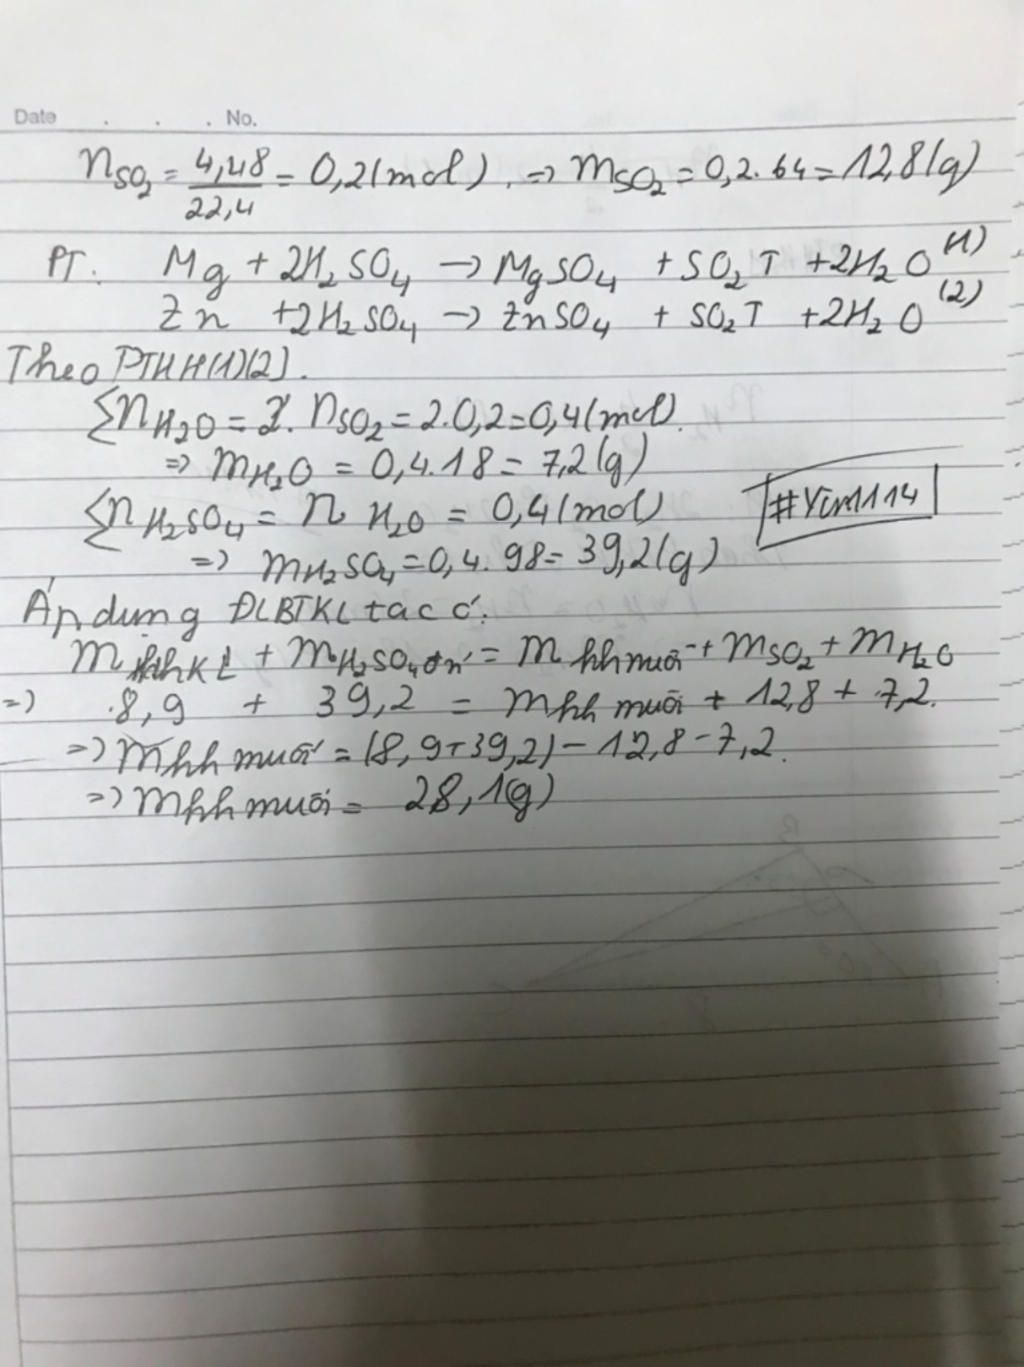 Date . . . No.
nSO2 = 4,48/22,4 = 0,2(mol). => mSO2 = 0,2.64 = 12,8(g)
PT. Mg + 2H2SO4 -> MgSO4 + SO2↑ + 2H2O (1)
Zn + 2H2SO4 -> ZnSO4 + SO2↑ + 2H2O (2)
Theo PTHH(1)(2).
∑nH2O = 2. nSO2 = 2.0,2 = 0,4(mol).
=> mH2O = 0,4.18 = 7,2(g)
∑nH2SO4 = n H2O = 0,4(mol)
#Yin1114
=> mH2SO4 = 0,4. 98 = 39,2(g)
Áp dụng ĐLBTKL ta có:
m hhKL + mH2SO4 đn' = m hh muối + mSO2 + mH2O
=> 8,9 + 39,2 = mhh muối + 12,8 + 7,2.
=> mhh muối = (8,9+39,2) - 12,8 - 7,2.
=> mhh muối = 28,1(g)